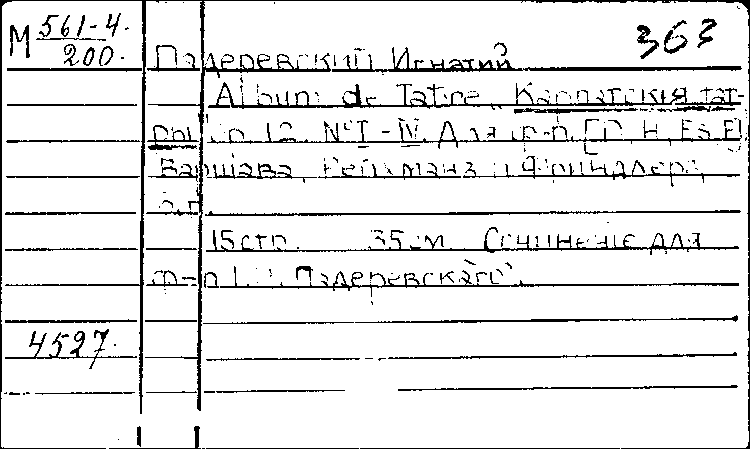 М 561-4.
200.
363
Падеревский, Игнатий
Album de Tatre „Карпатскія тат-
ры" op. 12. №I-IV. Для ф-п.
Варшава, Рейхманъ и Френдлеръ,
б.г.
15 стр. 35 см. Сочиненіе для
ф-п Падеревскаго".
4527.